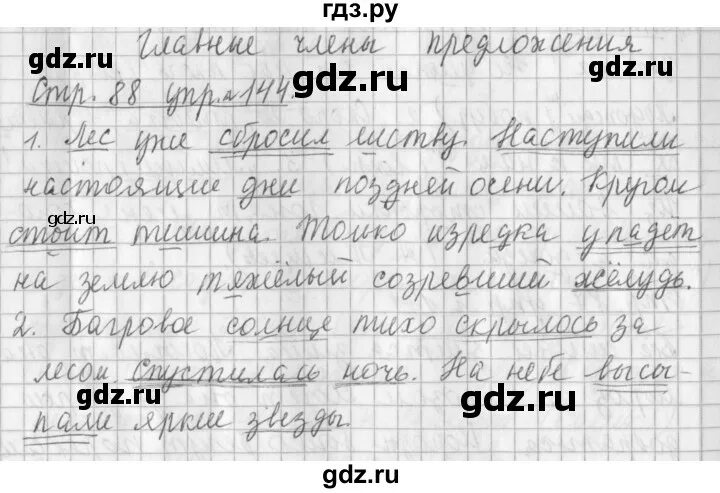 гдз.ру
Главные члены предложения
gdz.ru
Стр. 88 упр. 144.
gdz.ru
1. Лес уже сбросил листву. Наступили
настоящие дни поздней осени. Кругом
gdz.ru
стоит тишина. Только изредка упадёт
на землю тяжёлый созревший жёлудь.
2. Багровое солнце тихо скрылось за
лесом. Спустилась ночь. На небе высы-
gdz.ru
gdz.ru
пали яркие звезды.
gdz.ru